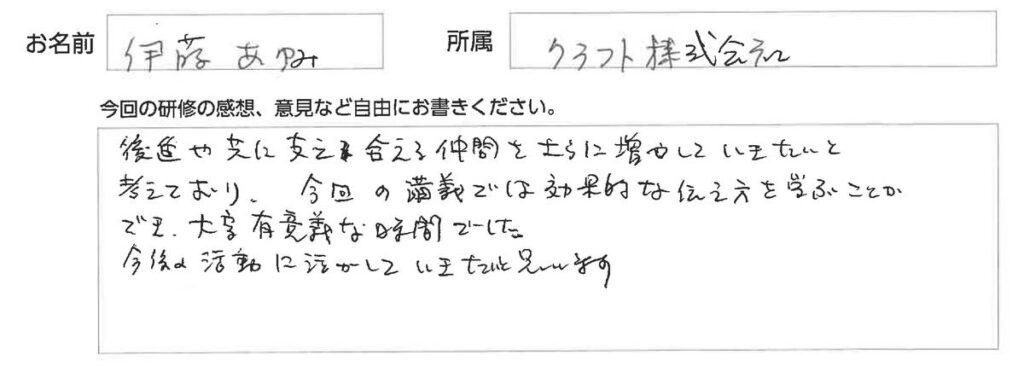 お名前 伊藤 あゆみ 所属 クラフト株式会社
今回の研修の感想、意見など自由にお書きください。
後進や共に支え合える仲間をさらに増やしていきたいと
考えており、今回の講義では効果的な伝え方を学ぶことが
でき、大変有意義な時間でした。
今後の活動に活かしていきたいと思います